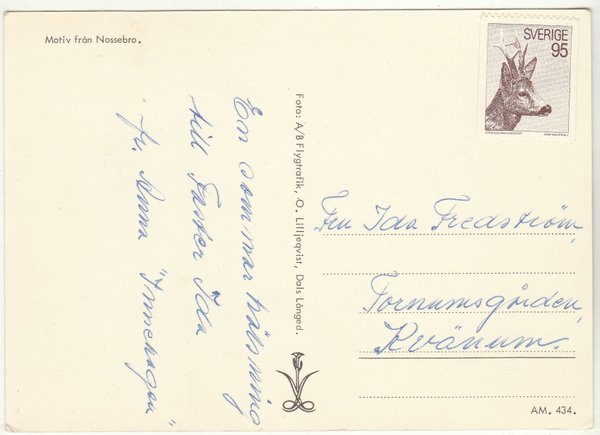 Motiv från Nossebro.
SVERIGE
95
En sommarhälsning
till Faster Ida
fr. Anna "Innehagen"
Foto: A/B Flygtrafik, O. Lilljeqvist, Dals Långed.
Fru Ida Fredström,
Fornumsgården,
Kvänum.
AM. 434.